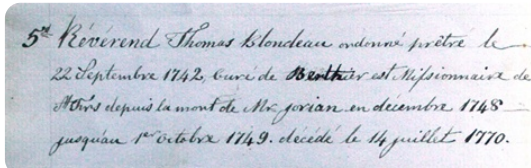 5me Révérend Thomas Blondeau ordonné prêtre le
22 Septembre 1742, Curé de Berthier est Missionnaire de
depuis la mort de Mr. Jorian en décembre 1748
jusqu'au 1er octobre 1749. décédé le 14 juillet 1770.